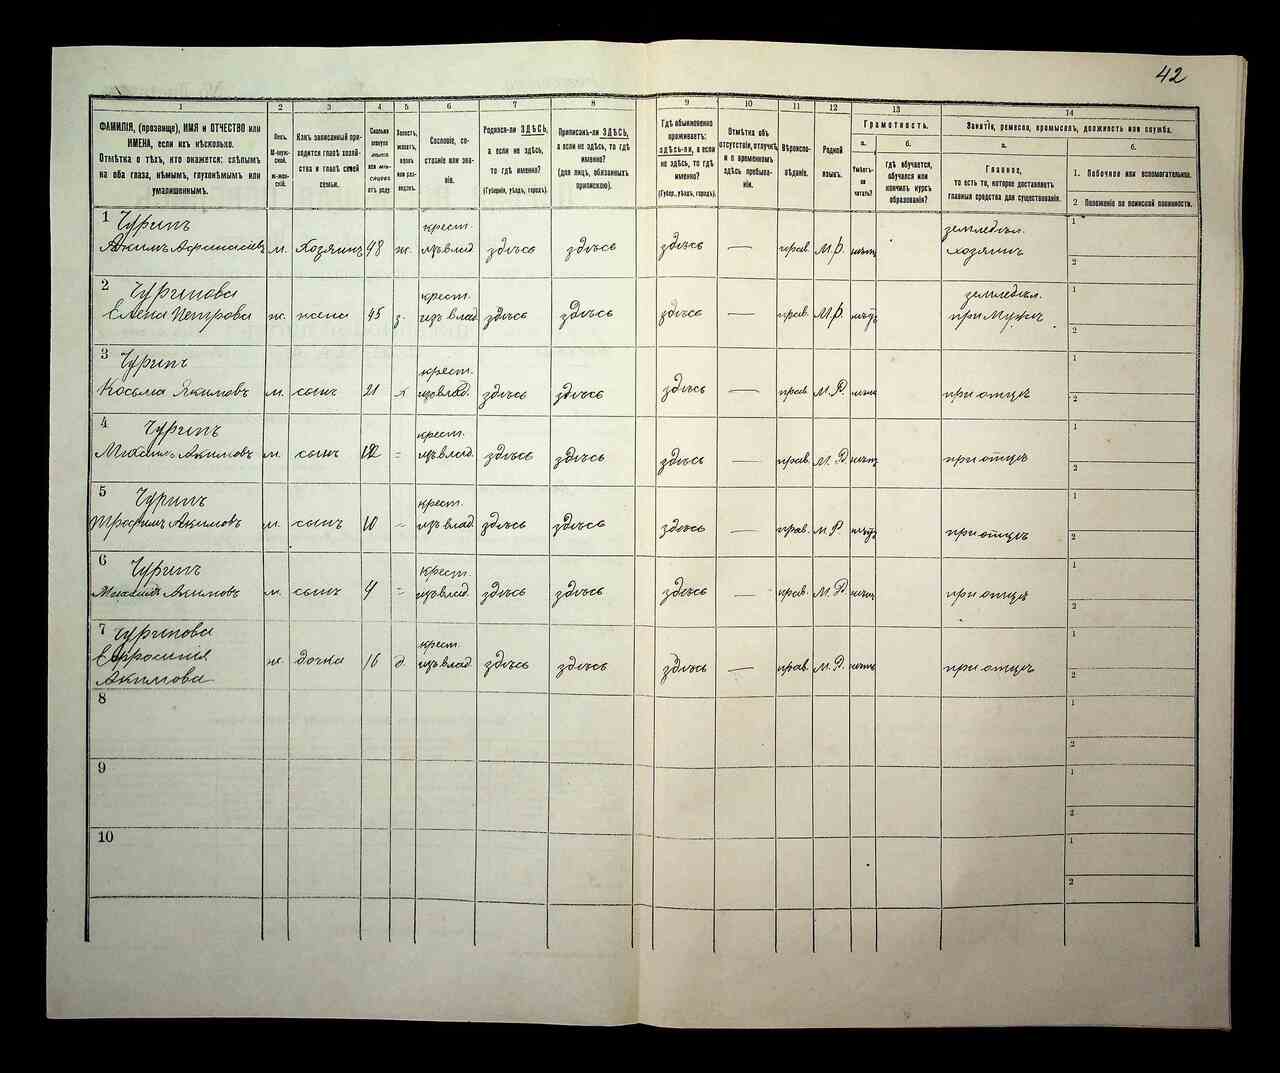 42
1 2 3 4 5 6 7 8 9 10 11 12 13 14
ФАМИЛІЯ, (прозвище), ИМЯ и ОТЧЕСТВО или ИМЕНА, если ихъ нѣсколько.
Отмѣтка о тѣхъ, кто окажется: слѣпымъ на оба глаза, нѣмымъ, глухонѣмымъ или умалишеннымъ.
Полъ. М-мужской. ж-женскій.
Какъ записанный приходится главѣ хозяйства и главѣ своей семьи.
Сколько минуло лѣтъ или мѣсяцевъ отъ роду
Холостъ, женатъ, вдовъ или разведенъ.
Сословіе, состояніе или званіе.
Родился-ли ЗДѢСЬ, а если не здѣсь, то гдѣ именно?
(Губернія, уѣздъ, городъ).
Приписанъ-ли ЗДѢСЬ, а если не здѣсь, то гдѣ именно?
(для лицъ, обязанныхъ припискою).
Гдѣ обыкновенно проживаетъ: здѣсь-ли, а если не здѣсь, то гдѣ именно?
(Губер., уѣздъ, городъ).
Отмѣтка объ отсутствіи, отлучкѣ и о временномъ здѣсь пребываніи.
Вѣроисповѣданіе.
Родной языкъ.
Грамотность.
а. Умѣетъ-ли читать?
б. Гдѣ обучается, обучался или кончилъ курсъ образованія?
Занятіе, ремесло, промыселъ, должность или служба.
а. Главное, то есть то, которое доставляетъ главныя средства для существованія.
б.
1. Побочное или вспомогательное.
2 Положеніе по воинской повинности.
1 Чуринъ крест. земледѣл. 1
Акимъ Афанасіевъ м. Хозяинъ 48 ж. изъ влад. здѣсь здѣсь здѣсь — прав. М.Р. нѣтъ хозяинъ
2
2 Чуринова крест. земледѣл. 1
Елена Петрова ж. жена 45 з. изъ влад. здѣсь здѣсь здѣсь — прав. М.Р. нѣтъ при мужѣ
2
3 Чуринъ крест. 1
Косьма Якимовъ м. сынъ 21 х изъ влад. здѣсь здѣсь здѣсь — прав. М.Р. нѣтъ при отцѣ
2
4 Чуринъ крест. 1
Михаилъ Акимовъ м. сынъ 12 = изъ влад. здѣсь здѣсь здѣсь — прав. М.Р. нѣтъ при отцѣ
2
5 Чуринъ крест. 1
Трофимъ Акимовъ м. сынъ 10 – изъ влад. здѣсь здѣсь здѣсь — прав. М.Р. нѣтъ при отцѣ
2
6 Чуринъ крест. 1
Акимовъ м. сынъ 4 = изъ влад. здѣсь здѣсь здѣсь — прав. М.Р. нѣтъ при отцѣ
2
7 Чуринова крест. 1
Евфросинія ж. дочка 16 д. изъ влад. здѣсь здѣсь здѣсь — прав. М.Р. нѣтъ при отцѣ
Акимова 2
8 1
2
9 1
2
10 1
2